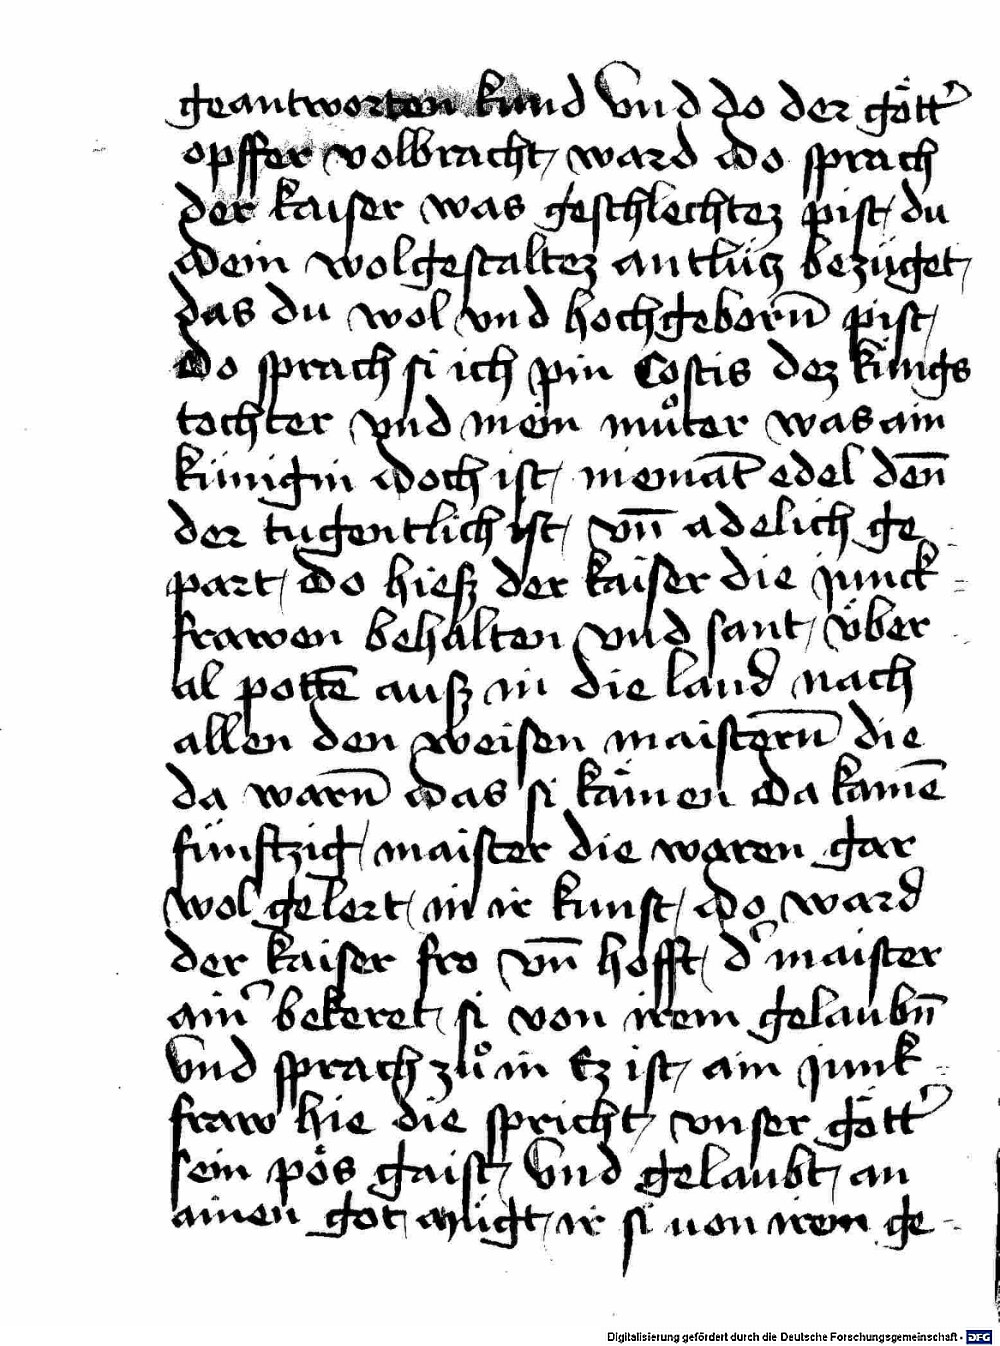 geantworten kund Vnd do der gött᾿
opffer volbracht / ward Do sprach
der kaiser was geschlechtez pist / du
Dein wolgestaltez antlücz bezüget /
das du wol vnd hochgeborn̄ pist /
Do sprach si ich pin Costis dez künigs
tochter vnd mein muͦter was ain
künigin Doch ist / niemāt edel den̄
der tugentlich ist / vn̄ adelich ge
part / Do hiesz der kaiser die junck =
frawen behalten vnd sant / über
al pottē ausz in die land nach
allen den weisen maistern̄ die
da warn̄ das si kämen Da kamē
fünftzig / maister die waren gar
wol gelert / in ir kunst / do ward
der kaiser fro vn̄ hofft / d᾿ maister
ain᾿ bekeret / si von irem gelaubn̄
Vnd sprach zuͦ in Ez ist / ain junk =
fraw hie die spricht / vnser gött᾿
sein pös gaist / Vnd gelaubt / an
ainen got / mügt / ir si von irem ge -
Digitalisierung gefördert durch die Deutsche Forschungsgemeinschaft - DFG